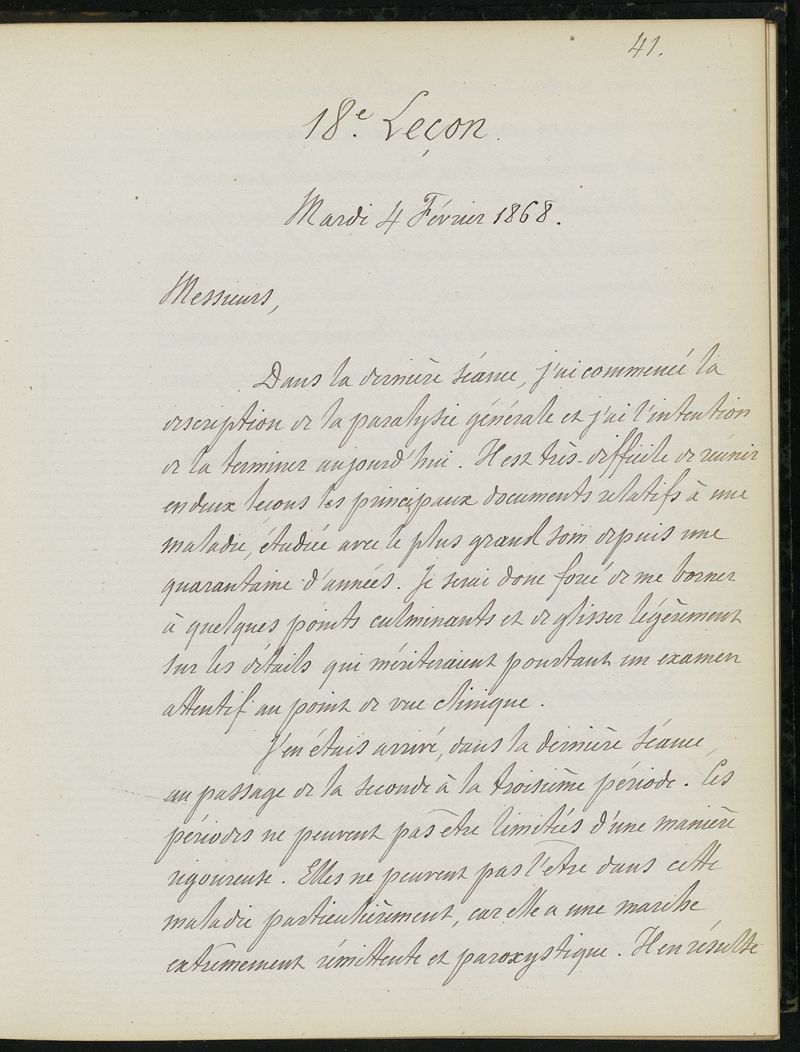 41.
18e. Leçon.
Mardi 4 Février 1868.
Messieurs,
Dans la dernière séance, j'ai commencé la
description de la paralysie générale et j'ai l'intention
de la terminer aujourd'hui. Il est très-difficile de réunir
en deux leçons les principaux documents relatifs à une
maladie, étudiée avec le plus grand soin depuis une
quarantaine d'années. Je serai donc forcé de me borner
à quelques points culminants et de glisser légèrement
sur les détails qui mériteraient pourtant un examen
attentif au point de vue clinique.
J'en étais arrivé, dans la dernière séance,
au passage de la seconde à la troisième période. Ces
périodes ne peuvent pas être limitées d'une manière
rigoureuse. Elles ne peuvent pas l'être dans cette
maladie particulièrement, car elle a une marche
extrêmement rémittente et paroxystique. Il en résulte